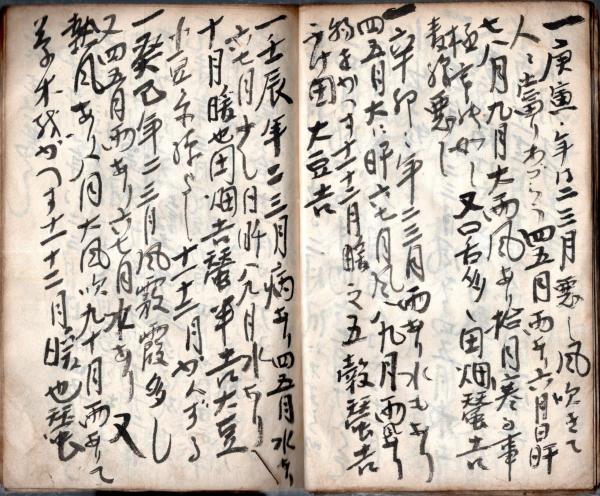 一庚寅ノ年ハ二三月悪し風吹きて
人ニ當りわづらう四五月雨有六月日旰
七八月九月大雨風あり拾月寒る事
極寒ノ如し又口舌多し田畑蚕吉
麦作悪し
一辛卯ノ年二三月雨あり水もあり
四五月大ニ旰六七月風八九月雨あり
物をかつす十一十二月暖之五穀蚕吉
田大豆吉
一壬辰年二三月病あり四五月水あり
六七月少し日旰八九月水あり
十月暖也田畑吉蚕半吉大豆
小豆よし十一十二月かんする
一癸巳年二三月風霰霞多し
又四五月雨あり六七月水あり又
熱風あり八月大風吹九十月雨ありて
草木をかつす十一十二月暖也蚕